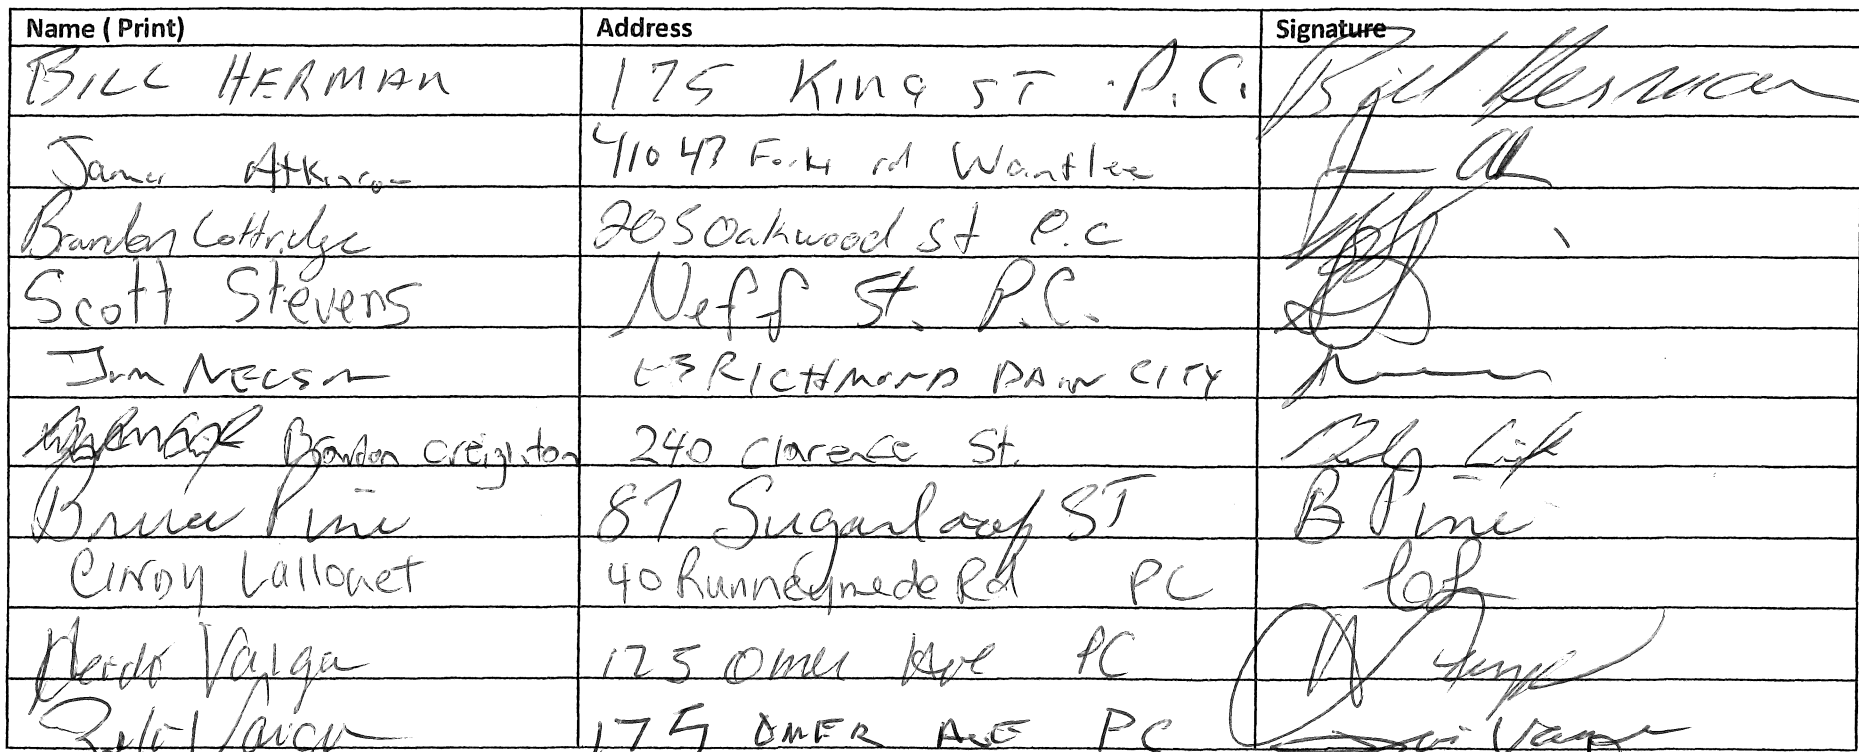 Name ( Print) Address Signature
BILL HERMAN 175 King ST P.C. Bill Herman
James Atkinson 41043 Forks rd Wainfleet
Brandon Cottridge 205 Oakwood st P.C
Scott Stevens Neff St. P.C.
Jim NELSON RICHMOND DAIN CITY
Brandon Creighton 240 Clarence St.
Bruce Pine 87 Sugarloaf ST B Pine
CINDY Lallouet 40 Runneymede Rd PC
Varga 125 Omer Ave PC
Varga 175 OMER AVE PC Varga